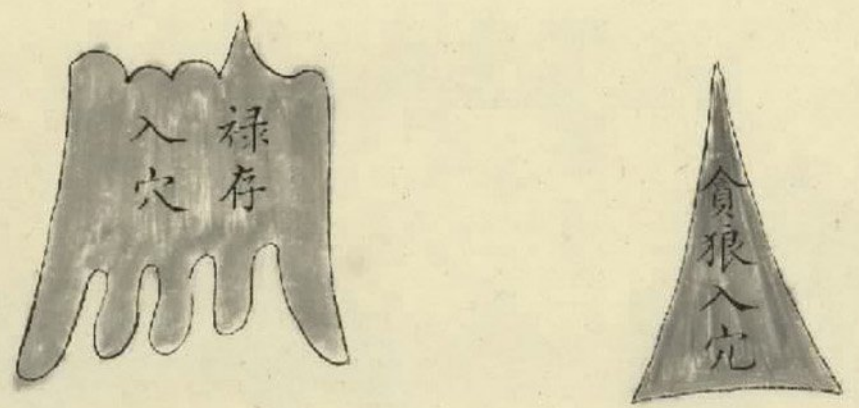 貪狼入穴
禄存
入穴